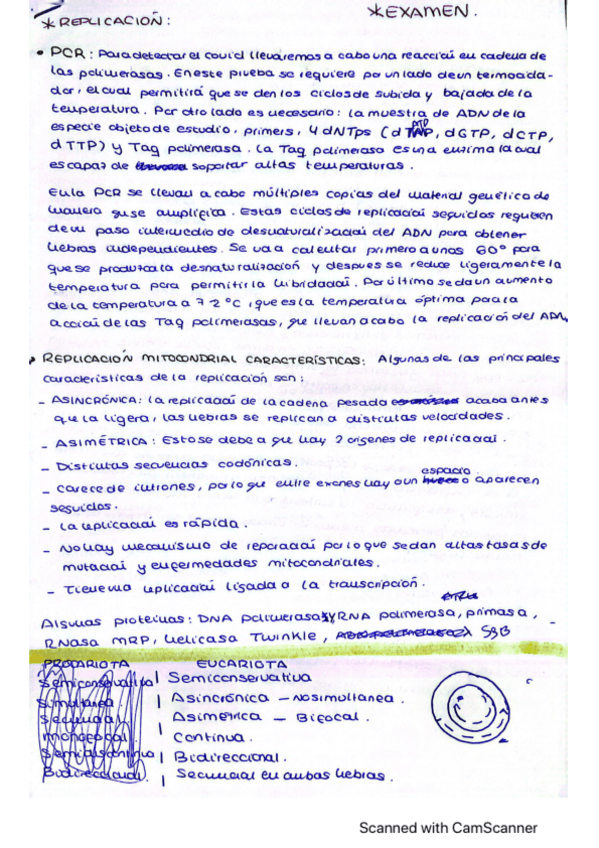 * REPLICACIÓN:
* EXAMEN.
• PCR: Para detectar el covid llevaremos a cabo una reacción en cadena de
las polimerasas. En este prueba se requiere por un lado de un termocicla-
dor, el cual permitirá que se den los ciclos de subida y bajada de la
temperatura. Por otro lado es necesario: la muestra de ADN de la
especie objeto de estudio, primers, 4 dNTPs (dATP, dGTP, dCTP,
dTTP) y Taq polimerasa. La Taq polimerasa es una enzima la cual
es capaz de soportar altas temperaturas.
En la PCR se llevan a cabo múltiples copias del material genético de
manera que se amplifica. Estas ciclos de replicación seguidos requieren
de un paso intermedio de desnaturalización del ADN para obtener
hebras independientes. Se va a calentar primero a unos 60° para
que se produzca la desnaturalización y despues se reduce ligeramente la
temperatura para permitir la hibridación. Por último se da un aumento
de la temperatura a 72°C, que es la temperatura óptima para la
acción de las Taq polimerasas, que llevan a cabo la replicación del ADN.
REPLICACIÓN MITOCONDRIAL CARACTERÍSTICAS: Algunas de las principales
características de la replicación son:
- ASINCRÓNICA: la replicación de la cadena pesada acaba antes
que la ligera, las hebras se replican a distintas velocidades.
- ASIMÉTRICA: Esto se debe a que hay 2 origenes de replicación.
- Distintas secuencias codónicas.
- Carece de intrones, por lo que entre exones hay o un espacio o aparecen
seguidos.
- La replicación es rápida.
- No hay mecanismo de reparación por lo que se dan altas tasas de
mutación y enfermedades mitocondriales.
- Tiene una replicación ligada a la transcripción.
Algunas proteínas: DNA polimerasa γ, RNA polimerasa, primasa,
RNasa MRP, helicasa Twinkle, SSB
PROCARIOTA EUCARIOTA
Semiconservativa Semiconservativa
Simultánea Asincrónica - No simultanea.
Secuencial Asimétrica - Bifocal.
monofocal Continua.
Semidiscontinua Bidireccional.
Bidireccional Secuencial en ambas hebras.
Scanned with CamScanner